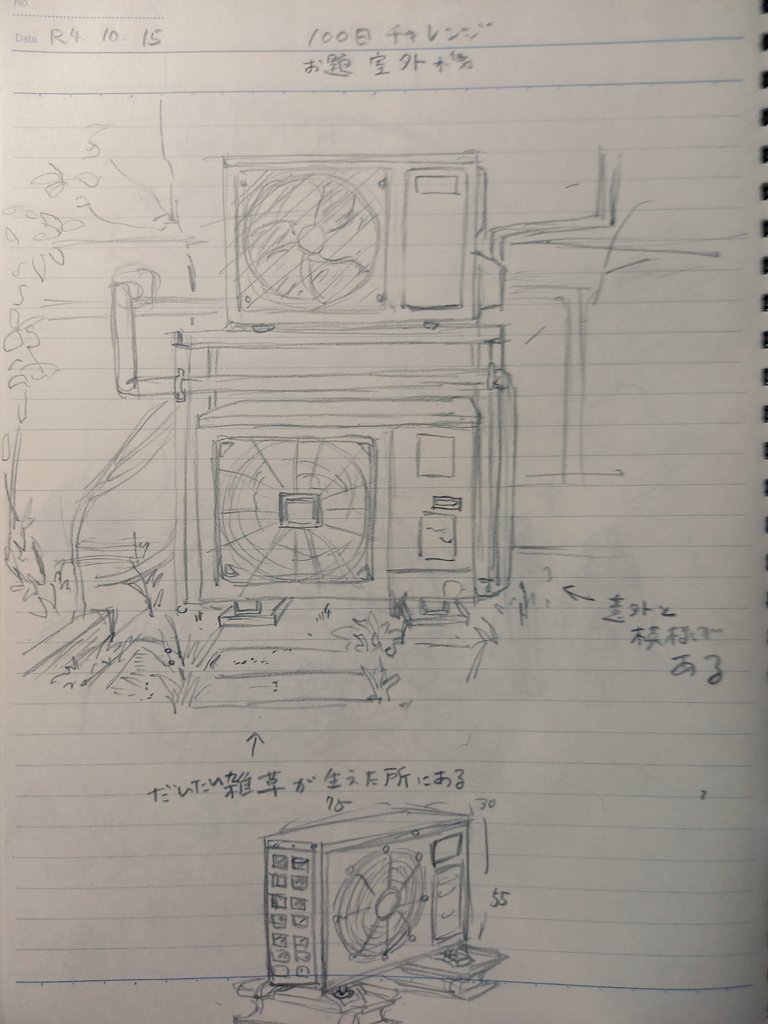 No.
Date R4. 10. 15
100日チャレンジ
お題 室外機
意外と
模様が
ある
だいたい雑草が生えた所にある
75
30
55